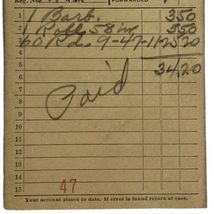 FORWARDED
1 1 Barb. 3 50
2 1 Roll 58 in 5 50
3 60 Rd. 9-47-11 25 20
4
5 34.20
6
7 Paid
8
9
10
11
12
13
14
15 47
Your account stated to date. If error is found return at once.